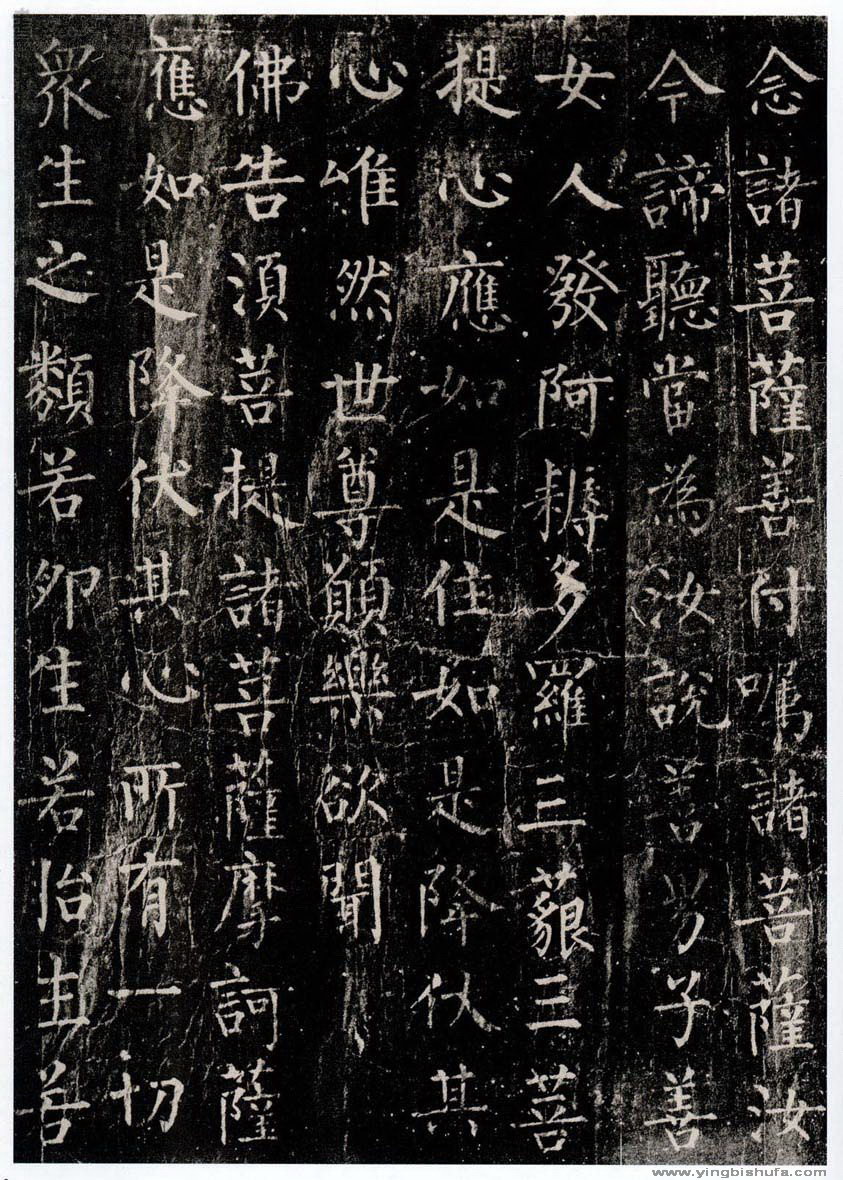 念諸菩薩善付嘱諸菩薩汝
今諦聽當為汝說善男子善
女人發阿耨多羅三藐三菩
提心應如是住如是降伏其
心唯然世尊願樂欲聞
佛告須菩提諸菩薩摩訶薩
應如是降伏其心所有一切
衆生之類若卵生若胎生若
www.yingbishufa.com